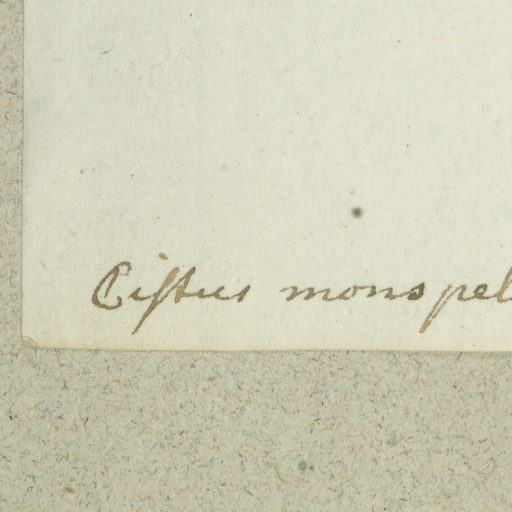 Ciſtus monspel